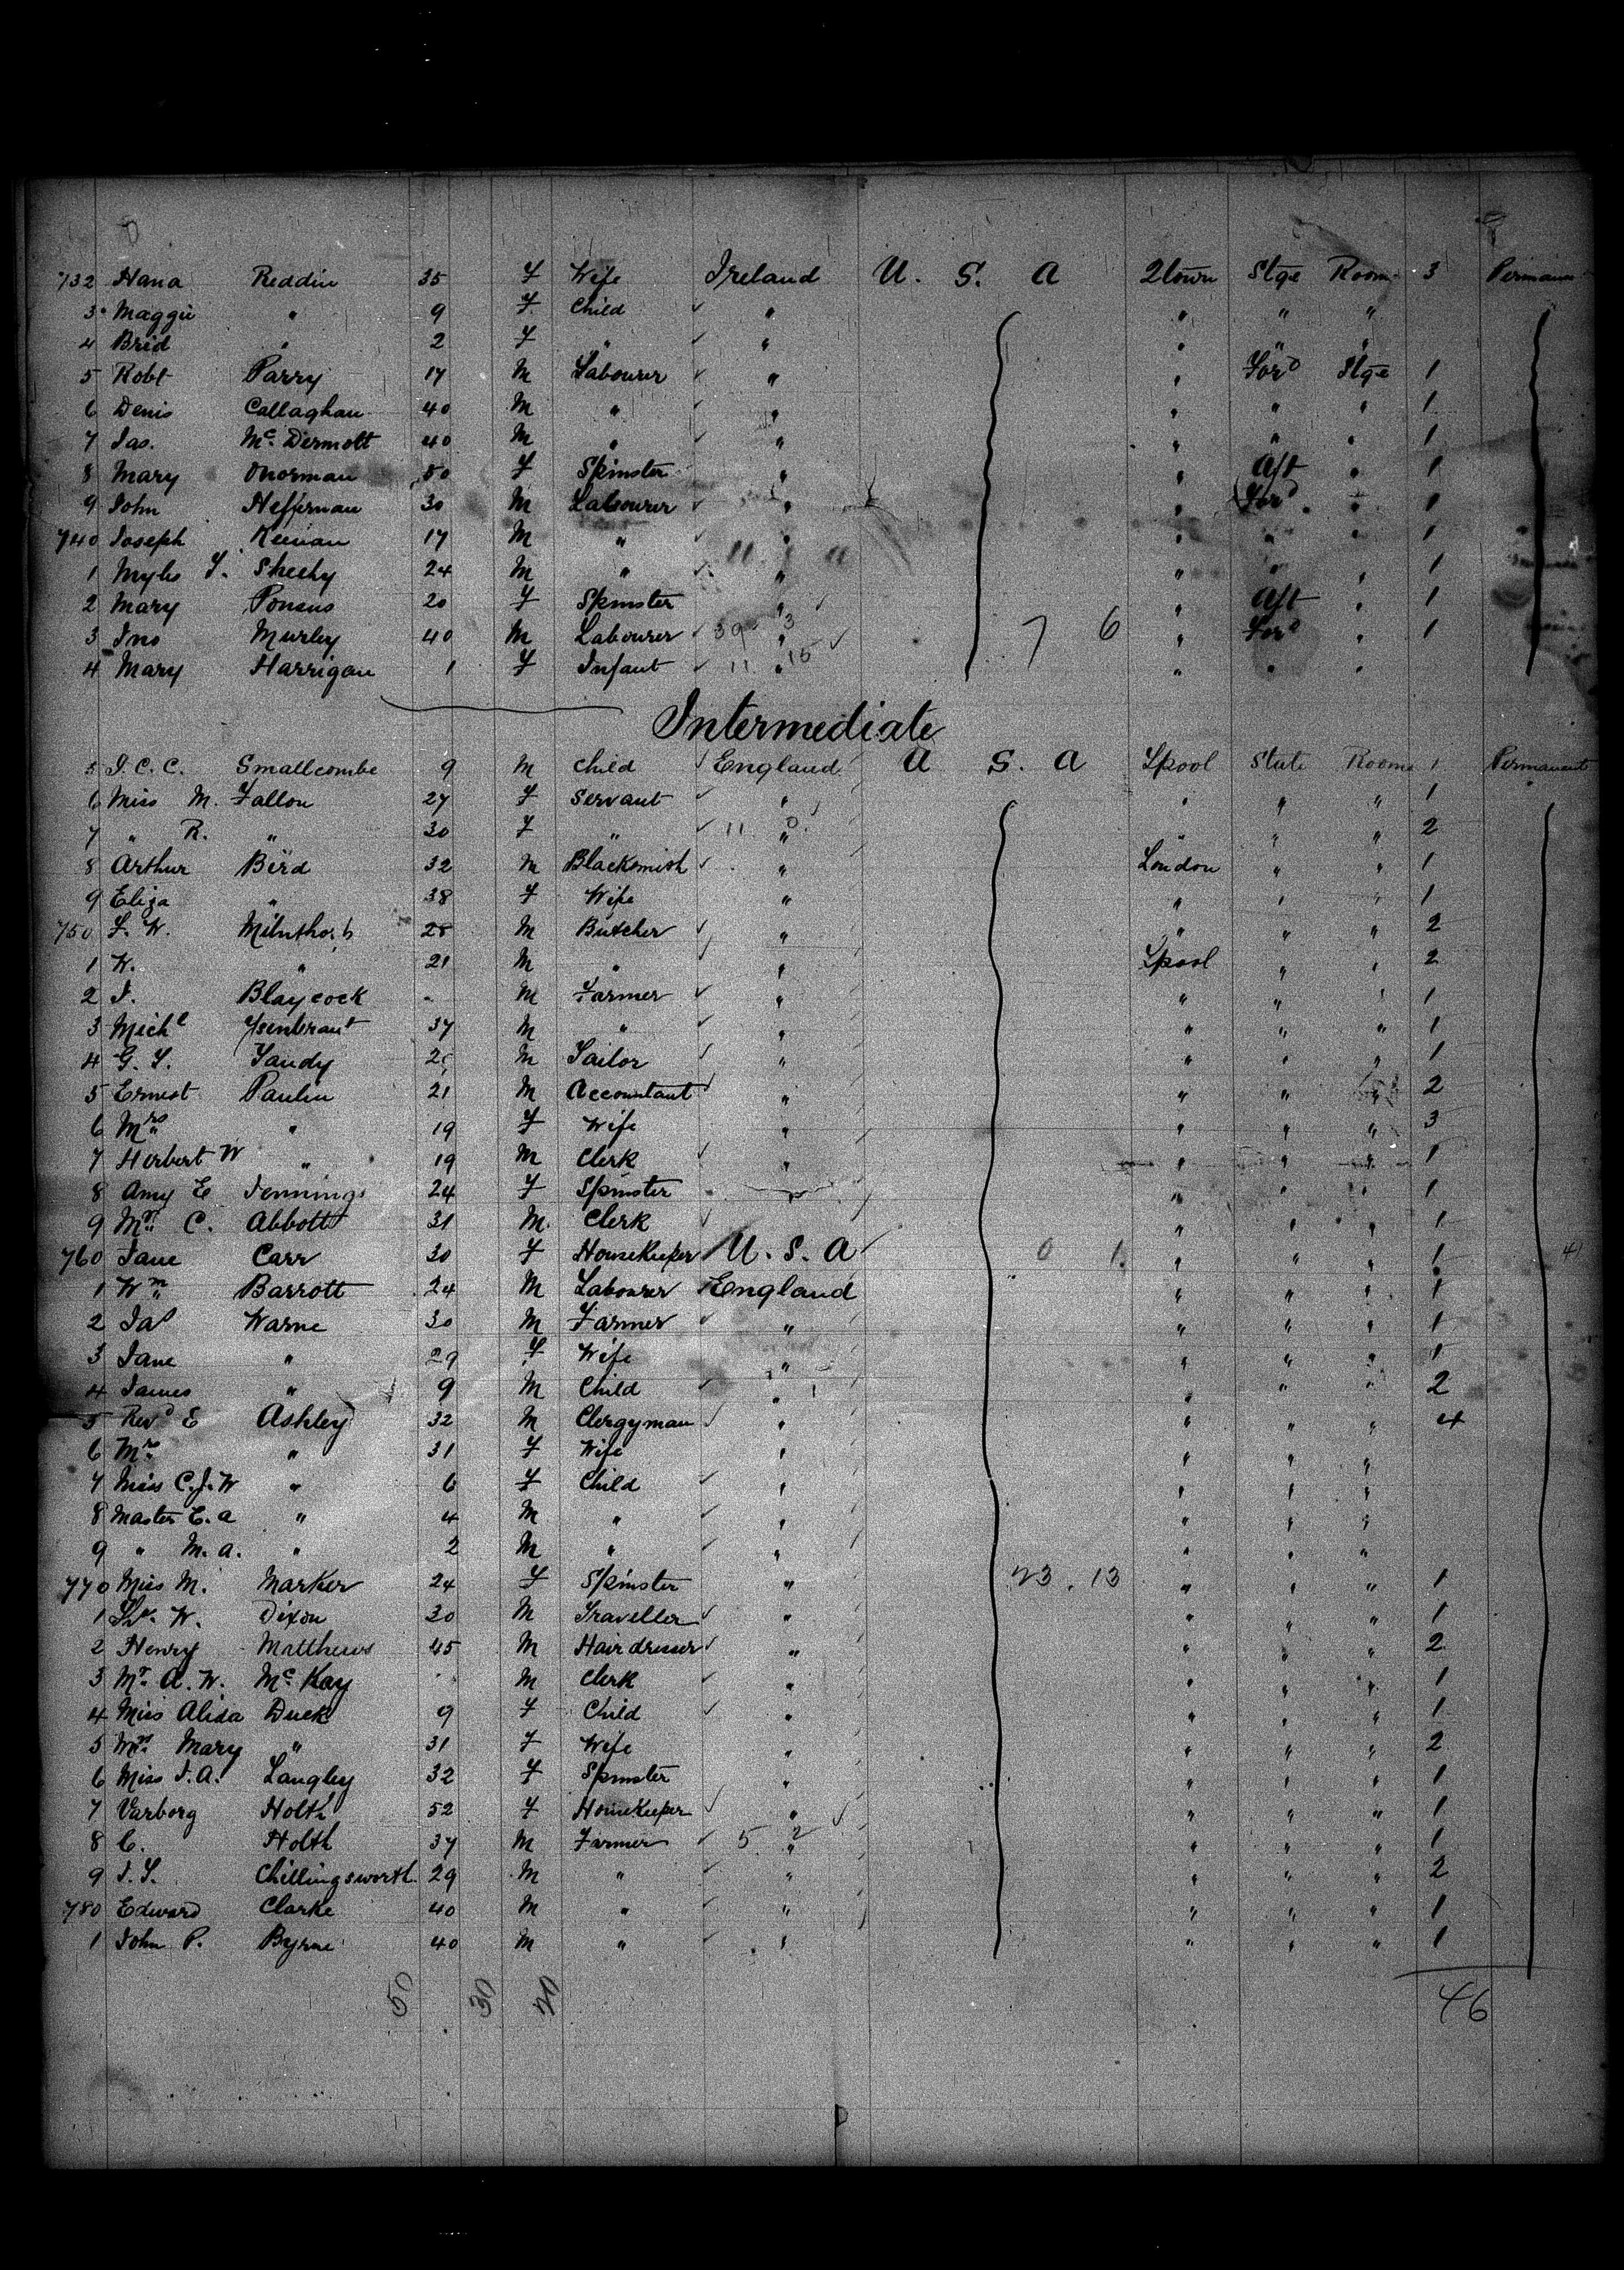 732 Hana Reddin 35 F Wife Ireland U. S. A 2town Stge Room 3 Permanen
3 Maggie " 9 F Child " " " "
4 Brid " 2 F " " " " "
5 Robt Parry 17 M Labourer " " Ford Stge 1
6 Denis Callaghan 40 M " " " " " 1
7 Jas. Mc Dermott 40 M " " " " " 1
8 Mary 50 F Spinster " " Aft " 1
9 John Heffernan 30 M Labourer " " Ford " 1
740 Joseph Keenan 17 M " " " " " 1
1 Myles Sheehy 24 M " " " " " 1
2 Mary 20 F Spinster " " Aft " 1
3 Jno Murley 40 M Labourer 39 3 " 7 6 " Ford " 1
4 Mary Harrigan 1 F Infant 11 " 15 " " "
Intermediate
5 J. C. C. Smallcombe 9 M Child England U S. A Lpool State Rooms 1 Permanent
6 Miss M. Fallon 27 F Servant " " " " 1
7 " R. " 30 F " 11 0 " " " " 2
8 Arthur Bird 32 M Blacksmith " London " " 1
9 Eliza " 38 F Wife " " " " 1
750 F. W. 28 M Butcher " " " " 2
1 W. " 21 M " " Lpool " " 2
2 J. Blaycock M Farmer " " " " 1
3 Michl 37 M " " " " " 1
4 M Tailor " " " " 1
5 Ernest Paulin 21 M Accountant " " " " 2
6 Mrs " 19 F Wife " " " " 3
7 Herbert W " 19 M Clerk " " " " 1
8 Amy E Jennings 24 F Spinster " " " " 1
9 Mr. C. Abbott 31 M. Clerk " " " 1
760 Jane Carr 30 F Housekeeper U. S. A 0 1 " " " 1 4
1 Wm Barrott 24 M Labourer England " " " 1
2 Jas Warne 30 M Farmer " " " " 1
3 Jane " 29 F Wife " " " " 1
4 James " 9 M Child " " " " 2
5 Revd E Ashley 32 M Clergyman " " " " 4
6 Mrs " 31 F Wife " " " "
7 Miss C. J. W " 6 F Child " " " "
8 Master E. A " 4 M " " " " "
9 " M. A. " 2 M " " " " "
770 Miss M. Marker 24 F Spinster " 23 . 13 " " " 1
1 W. Dixon 30 M Traveller " " " " 1
2 Henry Matthews 45 M Hairdresser " " " " 2
3 Mr. A. W. Mc Kay M Clerk " " " " 1
4 Miss Alida Duck 9 F Child " " " " 1
5 Mrs. Mary " 31 F Wife " " " " 2
6 Miss J. A. Langley 32 F Spinster " " " " 1
7 Varborg Holth 52 F Housekeeper " " " " 1
8 C. Holth 37 M Farmer 5 2 " " " " 1
9 Chillingsworth 29 M " " " " " 2
780 Edward Clarke 40 M " " " " " 1
1 John P. Byrne 40 M " " " " " 1
50 30 20 46